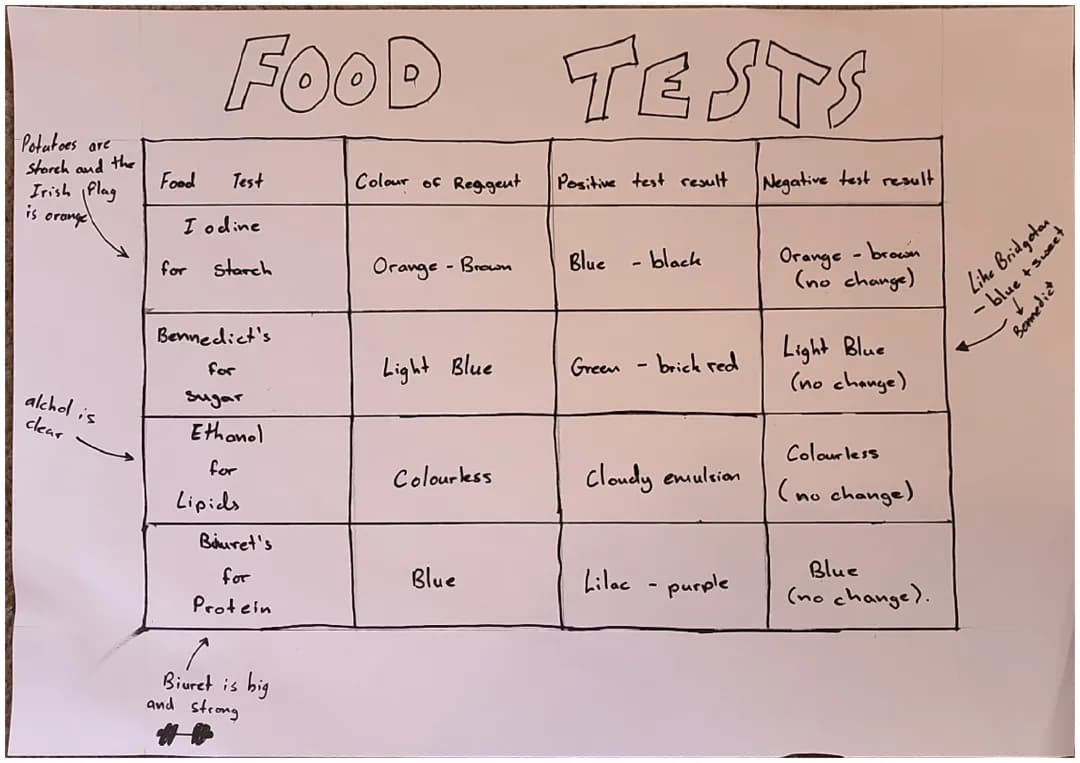 FOOD TESTS
Potatoes are
Starch and the
Irish flag
is orange
Food Test
Colour of Reagent
Positive test result
Negative test result
Iodine
for Starch
Orange - Brown
Blue - black
Orange - brown
(no change)
Like Bridgeton
- blue + sweet
↓
Bennedict
Bennedict's
for
Sugar
Light Blue
Green - brick red
Light Blue
(no change)
alchol is
clear
Ethanol
for
Lipids
Colourless
Cloudy emulsion
Colourless
(no change)
Biuret's
for
Protein
Blue
Lilac - purple
Blue
(no change).
Biuret is big
and strong